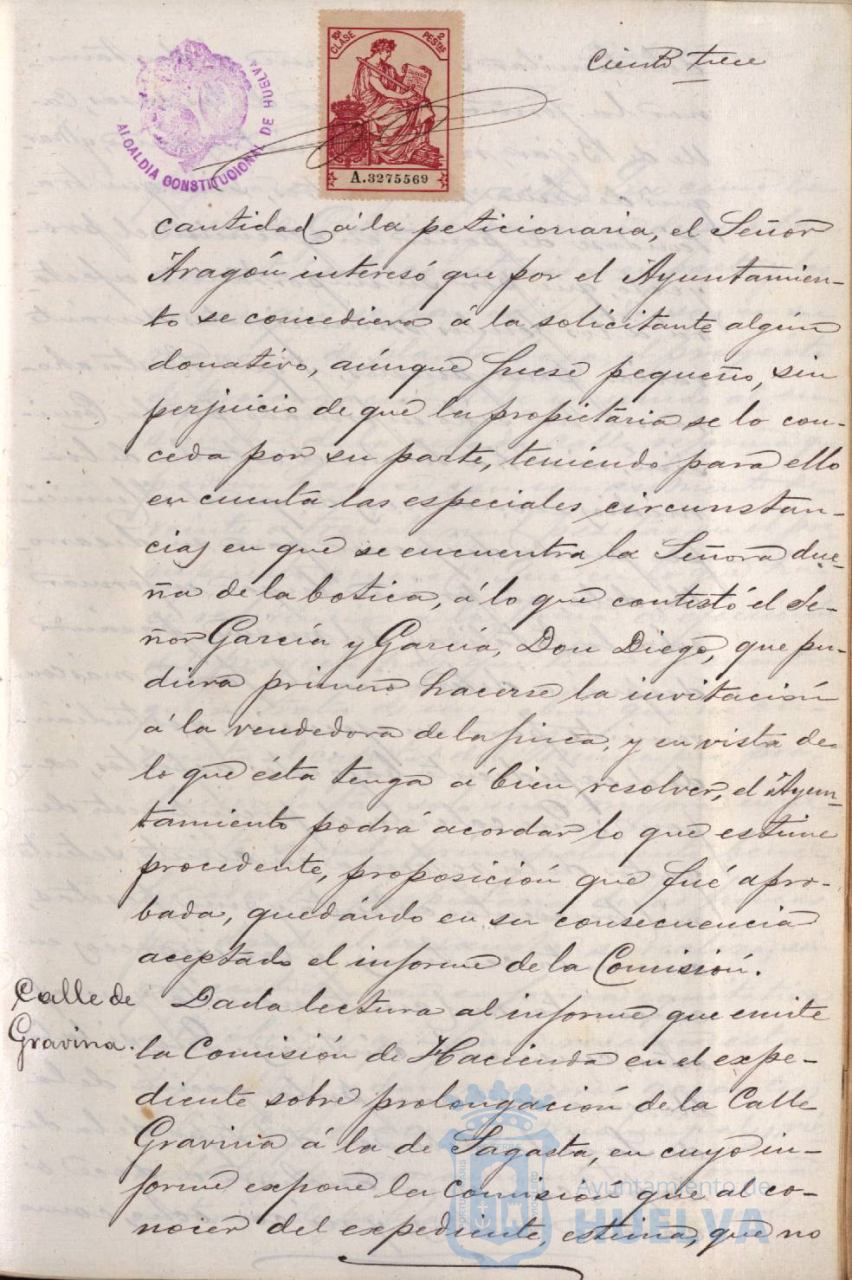 Ciento trece
10ª CLASE
2 PESTAS
A.3275569
ALCALDIA CONSTITUCIONAL DE HUELVA
cantidad á la peticionaria, el Señor
Aragón interesó que por el Ayuntamien-
to se concediera á la solicitante algún
donativo, aúnque fuese pequeño, sin
perjuicio de que la propietaria se lo con-
ceda por su parte, teniendo para ello
en cuenta las especiales circunstan-
cias en que se encuentra la Señora due-
ña de la botica, á lo que contestó el Se-
ñor García y García, Don Diego, que pu-
diera primero hacerse la invitación
á la vendedora de la finca, y en vista de
lo que ésta tenga á bien resolver, el Ayun-
tamiento podrá acordar lo que estime
procedente, proposición que fué apro-
bada, quedándo en su consecuencia
aceptado el informe de la Comisión.
Calle de
Gravina.
Dada lectura al informe que emite
la Comisión de Hacienda en el expe-
diente sobre prolongación de la Calle
Gravina á la de Sagasta, en cuyo in-
forme expone la Comisión que al co-
nocer del expediente, estima, que no
Ayuntamiento de
HUELVA